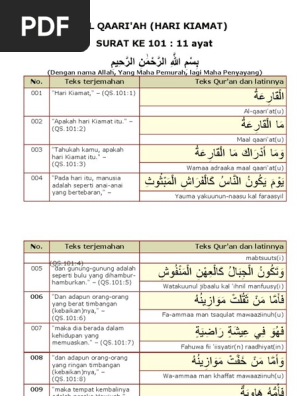 PDF
L QAARI'AH (HARI KIAMAT)
SURAT KE 101 : 11 ayat
بِسْمِ اللَّهِ الرَّحْمَٰنِ الرَّحِيمِ
(Dengan nama Allah, Yang Maha Pemurah, lagi Maha Penyayang)
No. Teks terjemahan Teks Qur'an dan latinnya
001 "Hari Kiamat," – (QS.101:1) الْقَارِعَةُ
Al-qaari'atu
002 "Apakah hari Kiamat itu." – (QS.101:2) مَا الْقَارِعَةُ
Maal qaari'atu
003 "Tahukah kamu, apakah hari Kiamat itu." – (QS.101:3) وَمَا أَدْرَاكَ مَا الْقَارِعَةُ
Wamaa adraaka maal qaari'atu
004 "Pada hari itu, manusia adalah seperti anai-anai yang bertebaran," – يَوْمَ يَكُونُ النَّاسُ كَالْفَرَاشِ الْمَبْثُوثِ
Yauma yakuunun-naasu kal faraasyil
No. Teks terjemahan Teks Qur'an dan latinnya
(QS.101:4) mabtsuuts(i)
005 "dan gunung-gunung adalah seperti bulu yang dihambur-hamburkan." – (QS.101:5) وَتَكُونُ الْجِبَالُ كَالْعِهْنِ الْمَنْفُوشِ
Watakuunul jibaalu kal 'ihnil manfuusy(i)
006 "Dan adapun orang-orang yang berat timbangan (kebaikan)nya," – (QS.101:6) فَأَمَّا مَنْ ثَقُلَتْ مَوَازِينُهُ
Fa-ammaa man tsaqulat mawaaziinuh(u)
007 "maka dia berada dalam kehidupan yang memuaskan." – (QS.101:7) فَهُوَ فِي عِيشَةٍ رَاضِيَةٍ
Fahuwa fii 'isyatir(n) raadhiyat(n)
008 "dan adapun orang-orang yang ringan timbangan (kebaikan)nya," – (QS.101:8) وَأَمَّا مَنْ خَفَّتْ مَوَازِينُهُ
Wa-ammaa man khaffat mawaaziinuh(u)
009 "maka tempat kembalinya فَأُمُّهُ هَاوِيَةٌ